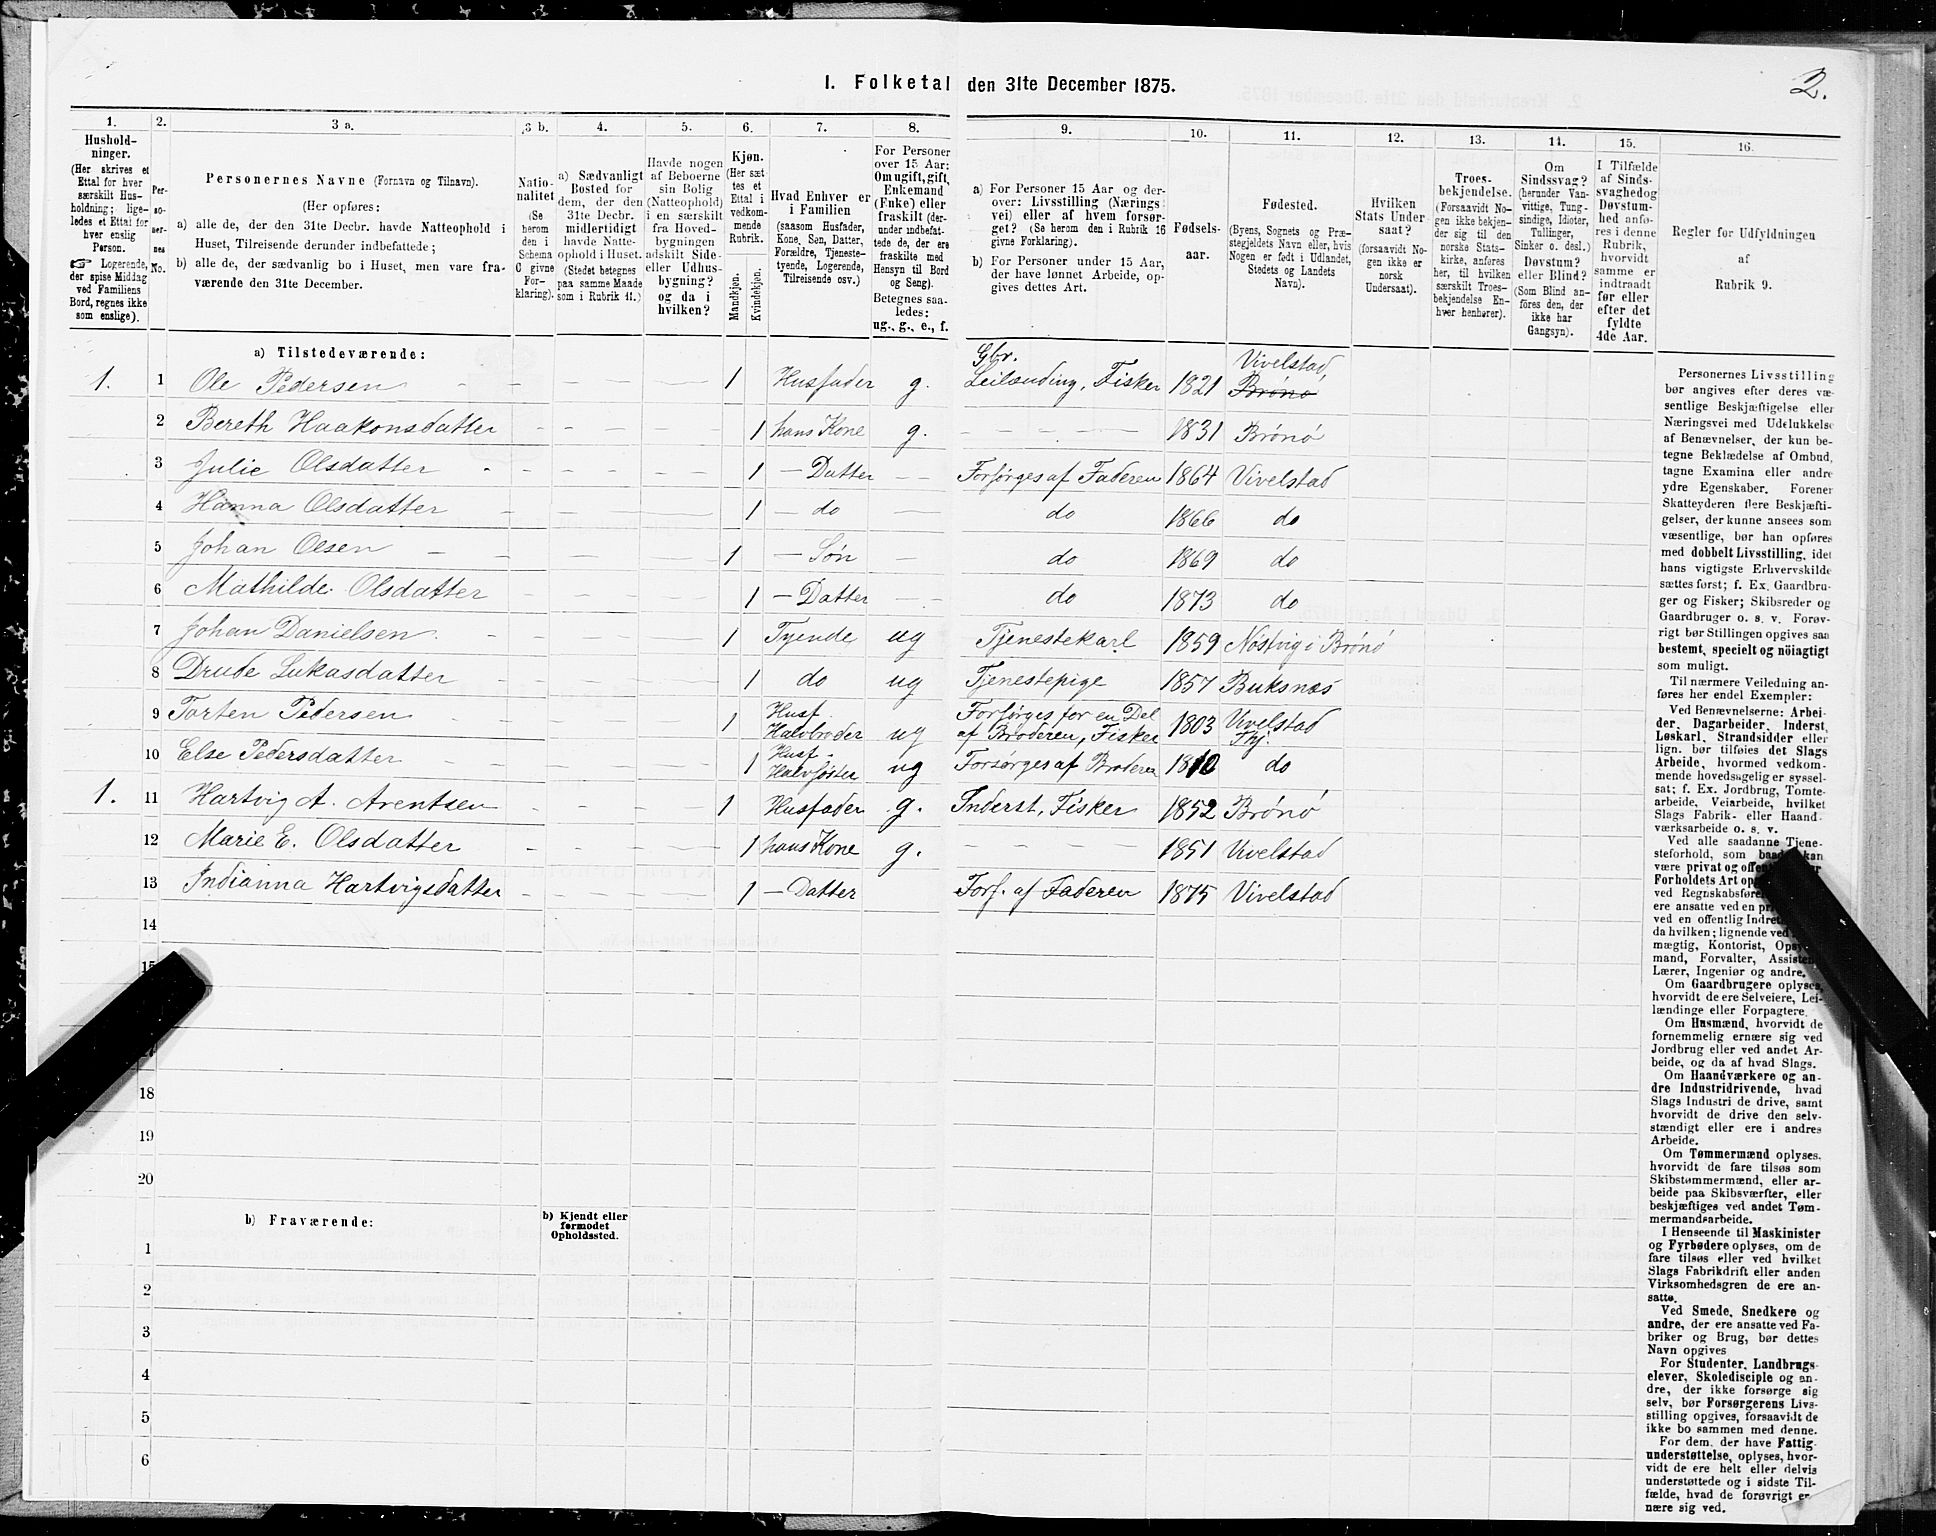 I. Folketal den 31te December 1875.
2.
1. 2. 3 a. 3 b. 4. 5. 6. 7. 8. 9. 10. 11. 12. 13. 14. 15. 16.
Hushold-
ninger.
(Her skrives et
Ettal for hver
særskilt Hus-
holdning; lige-
ledes et Ettal for
hver enslig
Person.
☞ Logerende,
der spise Middag
ved Familiens
Bord, regnes ikke
som enslige).
Per-
so-
ner-
nes
No.
Personernes Navne (Fornavn og Tilnavn).
(Her opføres:
a) alle de, der den 31te Decbr. havde Natteophold i
Huset, Tilreisende derunder indbefattede;
b) alle de, der sædvanlig bo i Huset, men vare fra-
værende den 31te December.
Natio-
nalitet
(Se
herom
den i
Schema
C givne
For-
klaring).
a) Sædvanligt
Bosted for
dem, der den
31te Decbr.
midlertidigt
havde Natte-
ophold i Huset.
(Stedet betegnes
paa samme Maade
som i Rubrik 11.)
Havde nogen
af Beboerne
sin Bolig
(Natteophold)
i en særskilt
fra Hoved-
bygningen
adskilt Side-
eller Udhus-
bygning?
og da i
hvilken?
Kjøn.
(Her sæt-
tes et
Ettal i
vedkom-
mende
Rubrik.
Mandkjøn.
Kvindekjøn.
Hvad Enhver er
i Familien
(saasom Husfader,
Kone, Søn, Datter,
Forældre, Tjeneste-
tyende, Logerende,
Tilreisende osv.)
For Personer
over 15 Aar:
Om ugift, gift,
Enkemand
(Enke) eller
fraskilt (der-
under indbefat-
tede de, der ere
fraskilte med
Hensyn til Bord
og Seng).
Betegnes saa-
ledes:
ug., g., e., f.
a) For Personer 15 Aar og der-
over: Livsstilling (Nærings-
vei) eller af hvem forsør-
get? (Se herom den i Rubrik 16
givne Forklaring).
b) For Personer under 15 Aar,
der have lønnet Arbeide, op-
gives dettes Art.
Fødsels-
aar.
Fødested.
(Byens, Sognets og Præ-
stegjeldets Navn eller, hvis
Nogen er født i Udlandet,
Stedets og Landets
Navn).
Hvilken
Stats Under-
saat?
(forsaavidt No-
gen ikke er
norsk
Undersaat).
Troes-
bekjendelse.
(Forsaavidt No-
gen ikke bekjen-
der sig til den
norske Stats-
kirke, anføres
her, til hvilken
særskilt Troes-
bekjendelse En-
hver henhører).
Om
Sindssvag?
(herunder Van-
vittige, Tung-
sindige, Idioter,
Tullinger,
Sinker o. desl.)
Døvstum?
eller Blind?
(Som Blind an-
føres den, der
ikke har
Gangsyn).
I Tilfælde
af Sinds-
svaghed og
Døvstum-
hed anfø-
res i denne
Rubrik,
hvorvidt
samme er
indtraadt
før eller
efter det
fyldte
4de Aar.
Regler for Udfyldningen
af
Rubrik 9.
a) Tilstedeværende:
Gbr. Vivelstad
1. 1 Ole Pedersen 1 Husfader g. Leilænding, Fisker 1821 Brønø
2 Bereth Haakonsdatter 1 hans Kone g. 1831 Brønø
3 Julie Olsdatter 1 – Datter Forsørges af Faderen 1864 Vivelstad
4 Hanna Olsdatter 1 – do do 1866 do
5 Johan Olsen 1 – Søn do 1869 do
6 Mathilde Olsdatter 1 – Datter do 1873 do
7 Johan Danielsen 1 Tyende ug Tjenestekarl 1859 Nøstvig i Brønø
8 Drude Lukasdatter 1 do ug Tjenestepige 1857 Buksnæs
Husf. Forsørges for en Del
9 Torten Pedersen 1 Halvbroder ug af Broderen, Fisker 1803 Vivelstad
Husf. Thj.
10 Else Pedersdatter 1 Halvsøster ug Forsørges af Broderen 1810 do
1. 11 Hartvig A. Arentsen 1 Husfader g. Inderst, Fisker 1852 Brønø
12 Marie E. Olsdatter 1 hans Kone g. 1851 Vivelstad
13 Indianna Hartvigsdatter 1 – Datter Forf. af Faderen 1875 Vivelstad
14
15
18
19
20
b) Fraværende:
b) Kjendt eller
formodet
Opholdssted.
1
2
3
4
5
6
Personernes Livsstilling
bør angives efter deres væ-
sentlige Beskjæftigelse eller
Næringsvei med Udelukkelse
af Benævnelser, der kun be-
tegne Beklædelse af Ombud,
tagne Examina eller andre
ydre Egenskaber. Forener
Skatteyderen flere Beskjæfti-
gelser, der kunne ansees som
væsentlige, bør han opføres
med dobbelt Livsstilling, idet
hans vigtigste Erhvervskilde
sættes først; f. Ex. Gaardbru-
ger og Fisker; Skibsreder og
Gaardbruger o. s. v. Forøv-
rigt bør Stillingen opgives saa
bestemt, specielt og nöiagtigt
som muligt.
Til nærmere Veiledning an-
føres her endel Exempler:
Ved Benævnelserne: Arbei-
der, Dagarbeider, Inderst,
Løskarl, Strandsidder eller
lign. bør tilføies det Slags
Arbeide, hvormed vedkom-
mende hovedsagelig er syssel-
sat; f. Ex. Jordbrug, Tomte-
arbeide, Veiarbeide, hvilket
Slags Fabrik- eller Haand-
værksarbeide o. s. v.
Ved alle saadanne Tjene-
steforhold, som baade kan
være privat og
Forholdets Art
ved Regnskabsføre
ere ansatte ved en
ved en offentlig
da hvilken; lignende ved
mægtig, Kontorist,
mand, Forvalter,
Lærer, Ingeniør og andre.
Om Gaardbrugere oplyses,
hvorvidt de ere Selveiere, Lei-
lændinge eller Forpagtere.
Om Husmænd, hvorvidt de
fornemmelig ernære sig ved
Jordbrug eller ved andet Ar-
beide, og da af hvad Slags.
Om Haandværkere og an-
dre Industridrivende, hvad
Slags Industri de drive, samt
hvorvidt de drive den selv-
stændigt eller ere i andres
Arbeide.
Om Tømmermænd oplyses,
hvorvidt de fare tilsøs som
Skibstømmermænd, eller ar-
beide paa Skibsværfter, eller
beskjæftiges ved andet Tøm-
mermandsarbeide.
I Henseende til Maskinister
og Fyrbødere oplyses, om de
fare tilsøs eller ved hvilket
Slags Fabrikdrift eller anden
Virksomhedsgren de ere an-
satte.
Ved Smede, Snedkere og
andre, der ere ansatte ved Fa-
briker og Brug, bør dettes
Navn opgives
For Studenter, Landbrugs-
elever, Skoledisciple og an-
dre, der ikke forsørge sig
selv, bør Forsørgerens Livs-
stilling opgives, forsaavidt de
ikke bo sammen med denne.
For dem, der have Fattig-
understøttelse, oplyses, hvor-
vidt de ere helt eller delvis
understøttede og i sidste Til-
fælde, hvad de forøvrigt er-
nære sig ved.